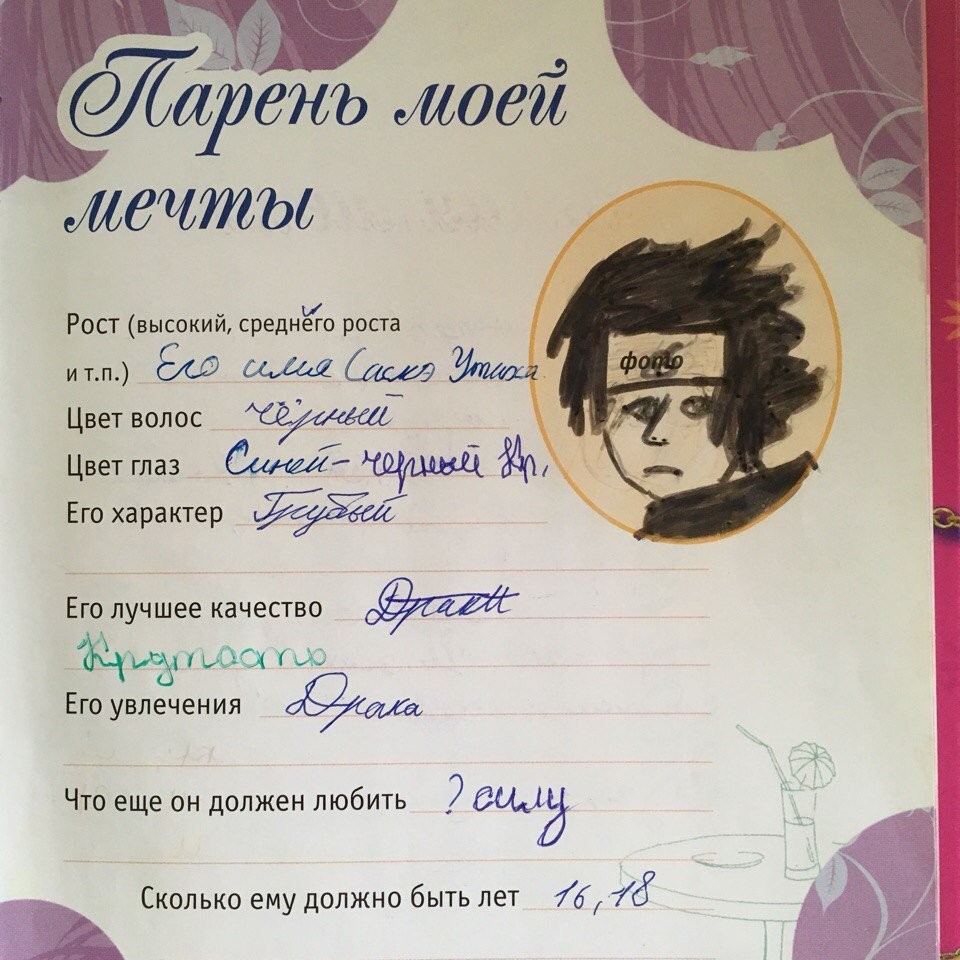 Парень моей
мечты
Рост (высокий, среднего роста
и т.п.) Его имя Саскэ Утиха
Цвет волос чёрный
Цвет глаз Синей-черный Кр.
Его характер Грубый
Его лучшее качество Драки
Крутость
Его увлечения Драка
Что еще он должен любить ? силу
Сколько ему должно быть лет 16, 18
фото